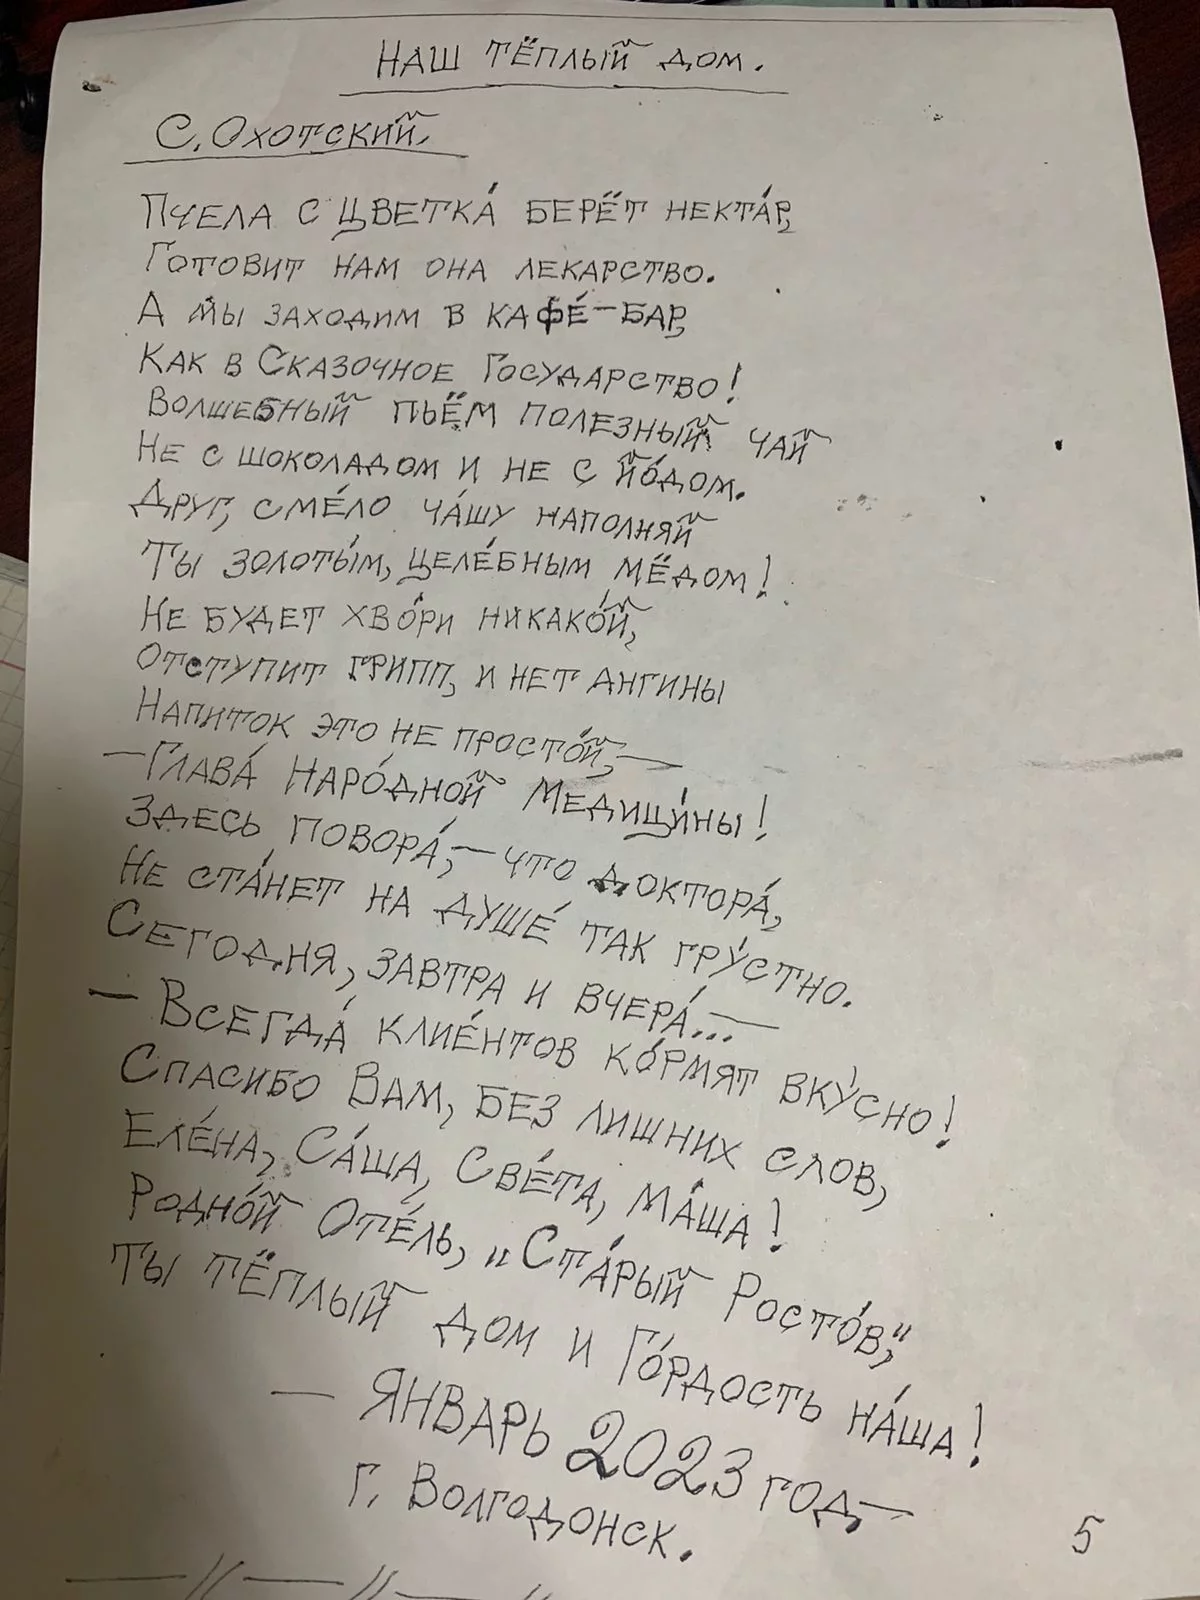 НАШ ТЁПЛЫЙ ДОМ.
С. ОХОТСКИЙ.
ПЧЕЛА С ЦВЕТКА́ БЕРЁТ НЕКТА́Р,
ГОТОВИТ НАМ ОНА ЛЕКАРСТВО.
А МЫ ЗАХОДИМ В КАФЕ́-БАР,
КАК В СКАЗОЧНОЕ ГОСУДАРСТВО!
ВОЛШЕБНЫЙ ПЬЁМ ПОЛЕЗНЫЙ ЧАЙ
НЕ С ШОКОЛАДОМ И НЕ С ЙО́ДОМ.
ДРУГ, СМЕ́ЛО ЧА́ШУ НАПОЛНЯЙ
ТЫ ЗОЛОТЫ́М, ЦЕЛЕ́БНЫМ МЁДОМ!
НЕ БУДЕТ ХВО́РИ НИКАКО́Й,
ОТСТУПИТ ГРИПП, И НЕТ АНГИНЫ
НАПИТОК ЭТО НЕ ПРОСТО́Й, —
— ГЛАВА́ НАРО́ДНОЙ МЕДИЦИ́НЫ!
ЗДЕСЬ ПОВОРА́, — ЧТО ДОКТОРА́,
НЕ СТА́НЕТ НА ДУШЕ́ ТАК ГРУ́СТНО.
СЕГОДНЯ, ЗАВТРА И ВЧЕРА́... —
— ВСЕГДА́ КЛИЕ́НТОВ КО́РМЯТ ВКУ́СНО!
СПАСИБО ВАМ, БЕЗ ЛИШНИХ СЛОВ,
ЕЛЕ́НА, СА́ША, СВЕ́ТА, МА́ША!
РОДНО́Й ОТЕ́ЛЬ, „СТА́РЫЙ РОСТО́В,“
ТЫ ТЁПЛЫЙ ДОМ И ГО́РДОСТЬ НА́ША!
— ЯНВАРЬ 2023 ГОД, —
Г. ВОЛГОДОНСК.
5